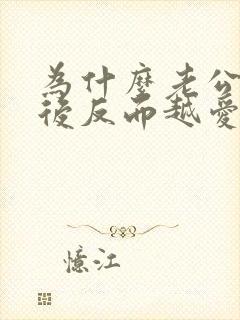 為什麼老公
後反而越愛
憶江